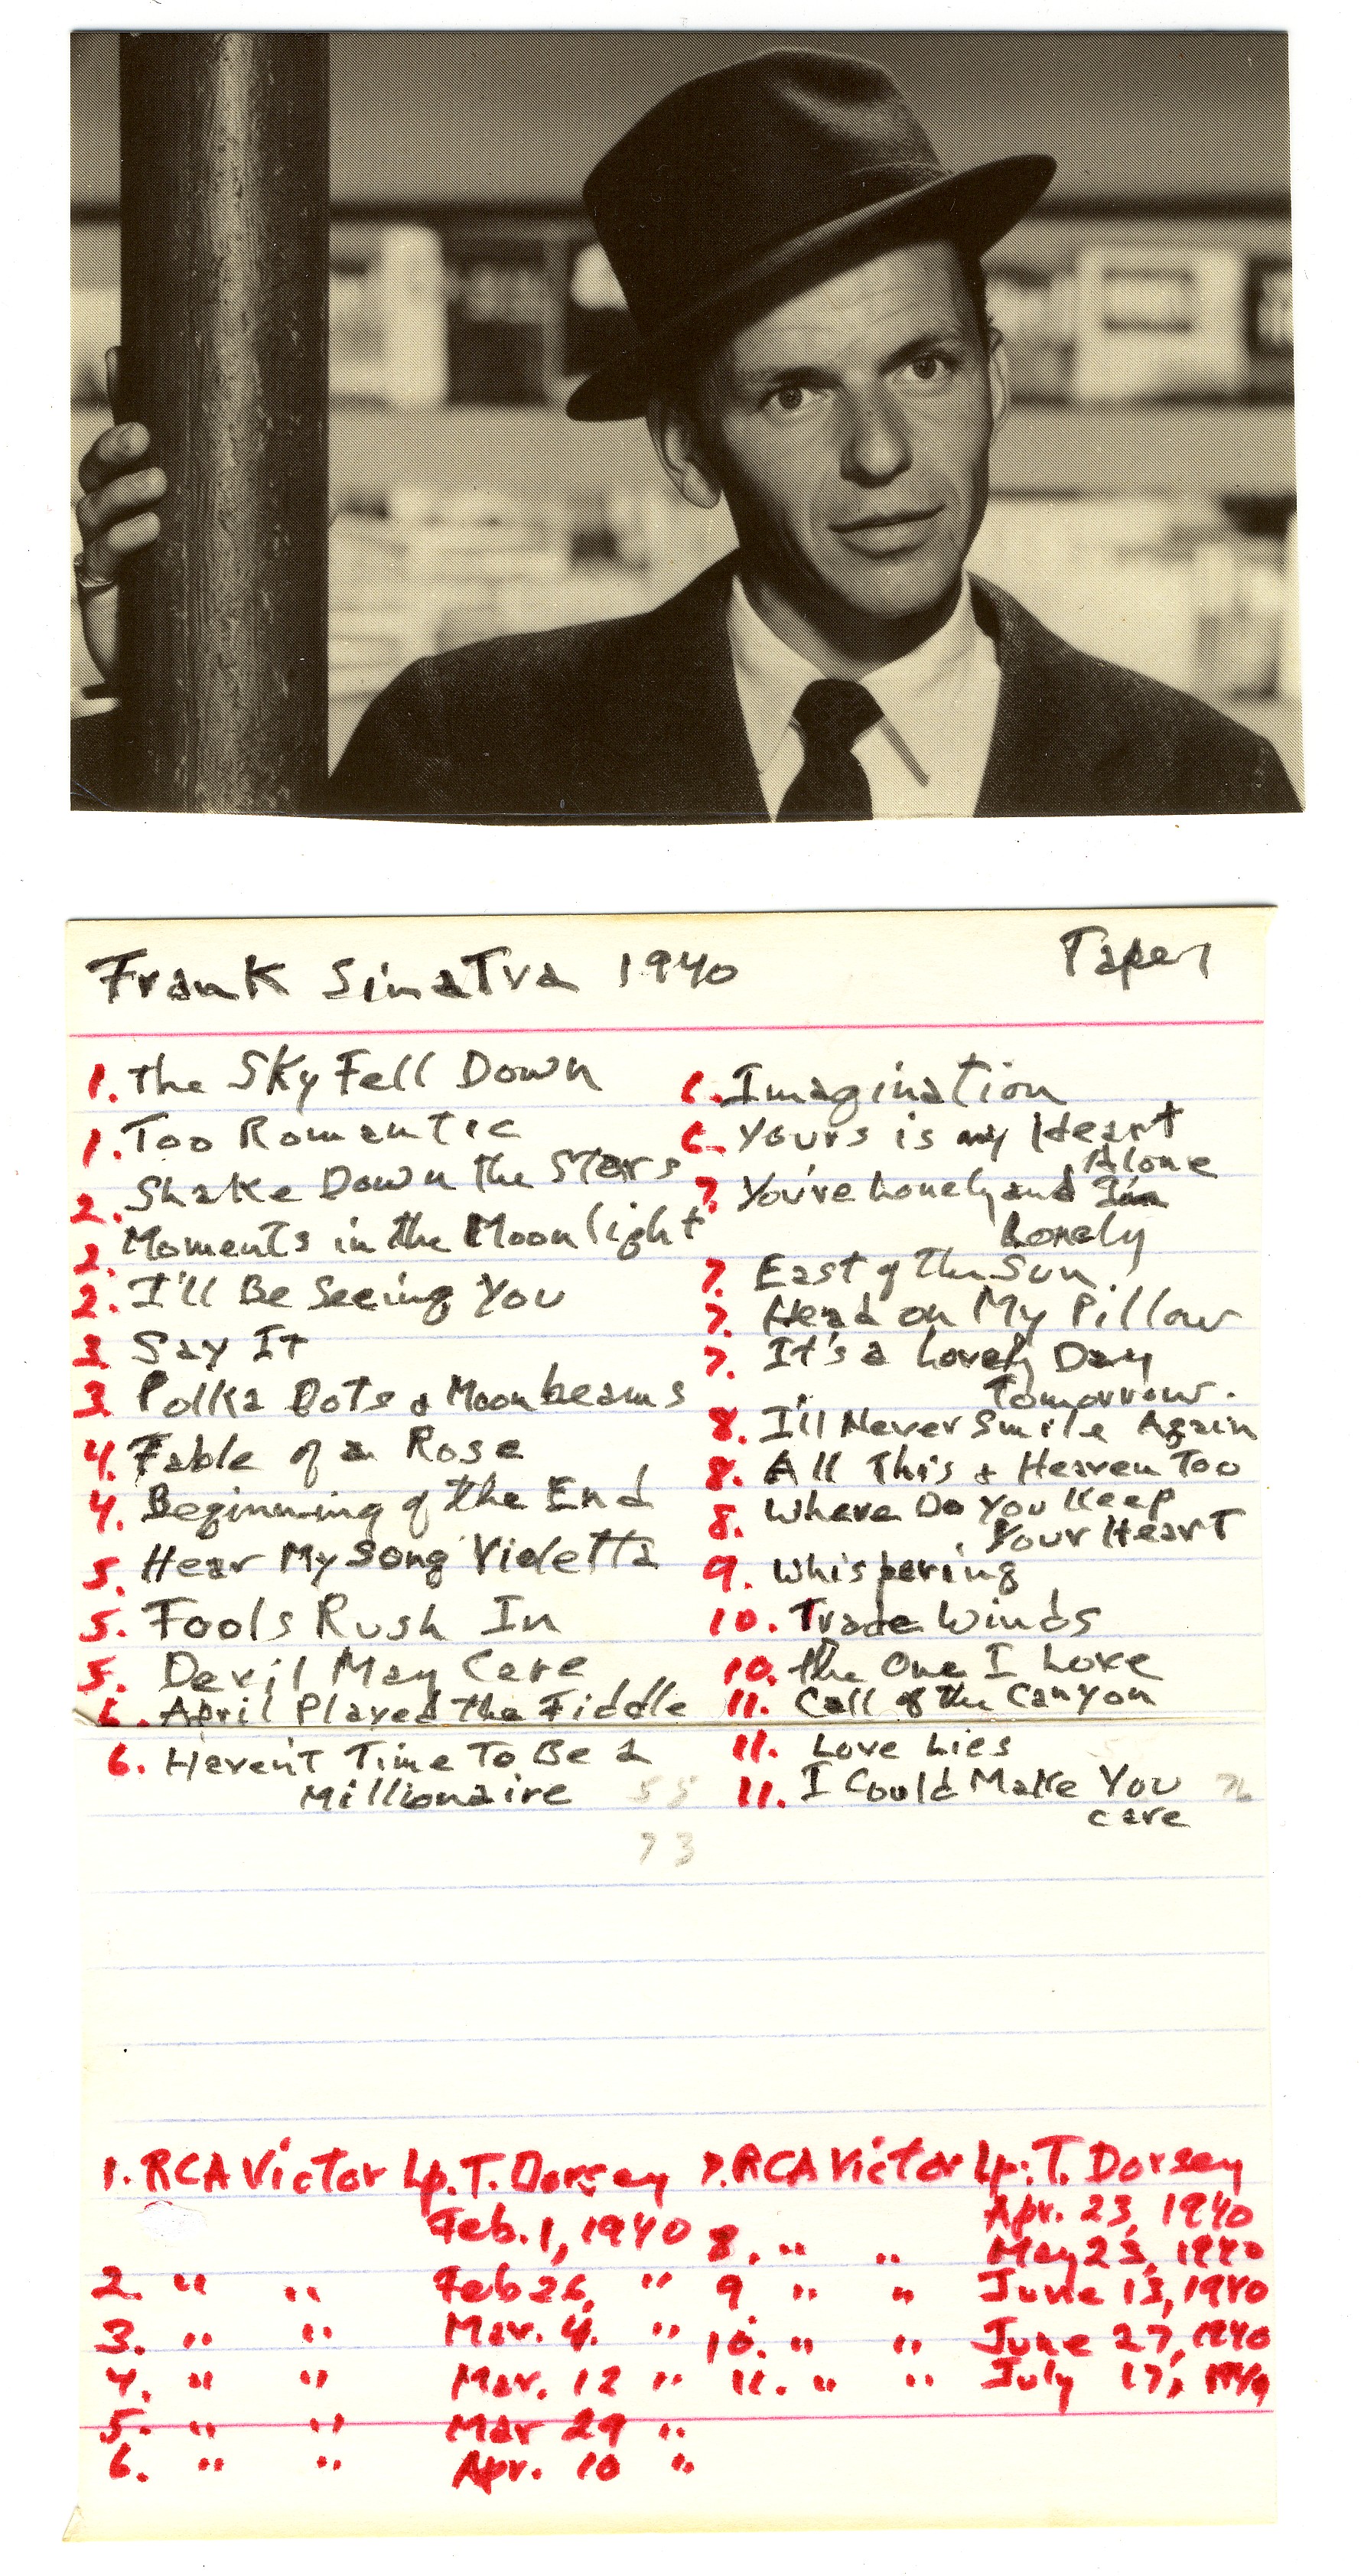 Frank Sinatra 1940
Tape 1
1. The Sky Fell Down
1. Too Romantic
2. Shake Down the Stars
2. Moments in the Moonlight
2. I'll Be Seeing You
3 Say It
3 Polka Dots & Moonbeams
4. Fable of a Rose
4. Beginning of the End
5. Hear My Song Violetta
5. Fools Rush In
5. Devil May Care
6. April Played the Fiddle
6. Haven't Time To Be a
Millionaire
55
73
6. Imagination
6. Yours is my Heart
Alone
7 You're Lonely and I'm
Lonely
7. East of the Sun
7. Head on My Pillow
7. It's a Lovely Day
Tomorrow.
8. I'll Never Smile Again
8. All This & Heaven Too
8. Where Do You Keep
Your Heart
9. Whispering
10. Trade Winds
10. The One I Love
11. Call of the Canyon
11. Love Lies
11. I Could Make You
care
1. RCA Victor Lp. T. Dorsey
Feb. 1, 1940
2. " " Feb 26, "
3. " " Mar. 4. "
4. " " Mar. 12 "
5. " " Mar 29 "
6. " " Apr. 10 "
7. RCA Victor Lp: T. Dorsey
Apr. 23, 1940
8. " " May 23, 1940
9 " " June 13, 1940
10. " " June 27, 1940
11. " " July 17, 1940